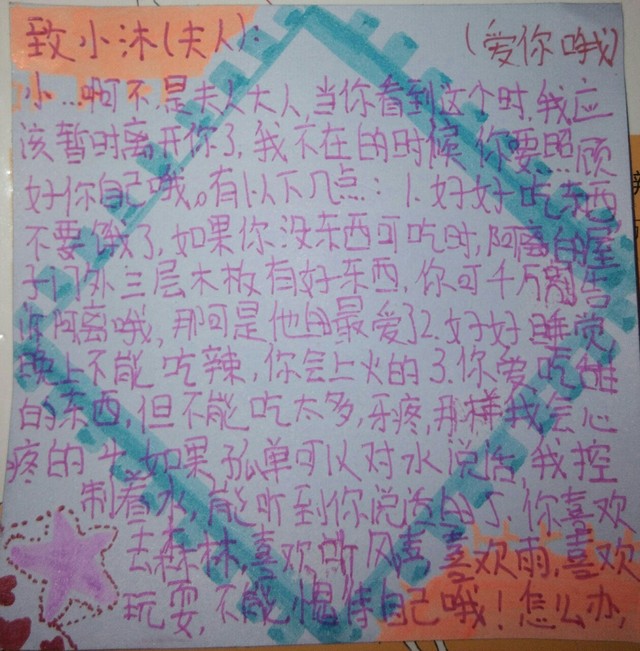 致小沐(夫人)：(爱你哦)
小…啊不,是夫人大人,当你看到这个时,我应
该暂时离开你了,我不在的时候你要照顾
好你自己哦。有以下几点：1.好好吃东西
不要饿了,如果你没东西可吃时,阿离的屋
子门外三层木板有好东西,你可千万别告
诉阿离哦,那可是他的最爱了2.好好睡觉
晚上不能吃辣,你会上火的3.你爱吃甜
的东西,但不能吃太多,牙疼,那样我会心
疼的4.如果孤单可以对水说话,我控
制着水,能听到你说话的了,你喜欢
去森林,喜欢听风喜欢雨,喜欢
玩耍,不能怠待自己哦!怎么办,